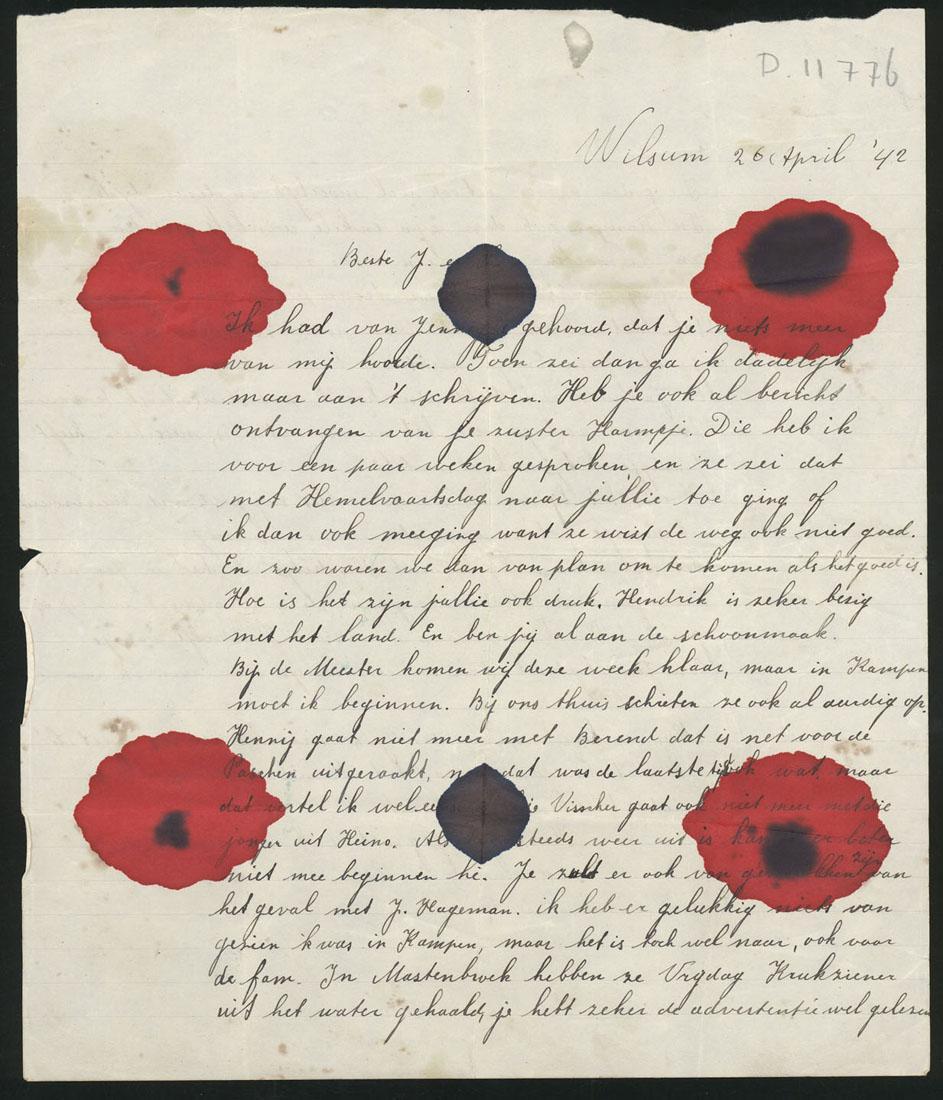 D. 11 776
Wilsum 26 April '42
Beste J. e
Ik had van gehoord, dat je niets meer
van mij hoorde. Toen zei dan ga ik dadelijk
maar aan 't schrijven. Heb je ook al bericht
ontvangen van je zuster Harmpje. Die heb ik
voor een paar weken gesproken en ze zei dat
met Hemelvaartsdag naar jullie toe ging of
ik dan ook meeging want ze wist de weg ook niet goed.
En zoo waren we dan van plan om te komen als het goed is.
Hoe is het zijn jullie ook druk. Hendrik is zeker bezig
met het land. En ben jij al aan de schoonmaak.
Bij de Meester komen wij deze week klaar, maar in Kampen
moet ik beginnen. Bij ons thuis schieten ze ook al aardig op.
Hennij gaat niet meer met Berend dat is net voor de
Paschen uitgeraakt, dat was de laatste tijd ook wat, maar
dat vertel ik wel Visscher gaat ook niet meer met die
jonger uit Heino. Als steeds weer uit is kan er beter
niet mee beginnen hè. Je zult er ook van zijn van
het geval met J. Hageman. ik heb er gelukkig niets van
gezien ik was in Kampen, maar het is toch wel naar, ook voor
de fam. In Mastenbroek hebben ze Vrijdag Krukziener
uit het water gehaald, je hebt zeker de advertentie wel gelezen